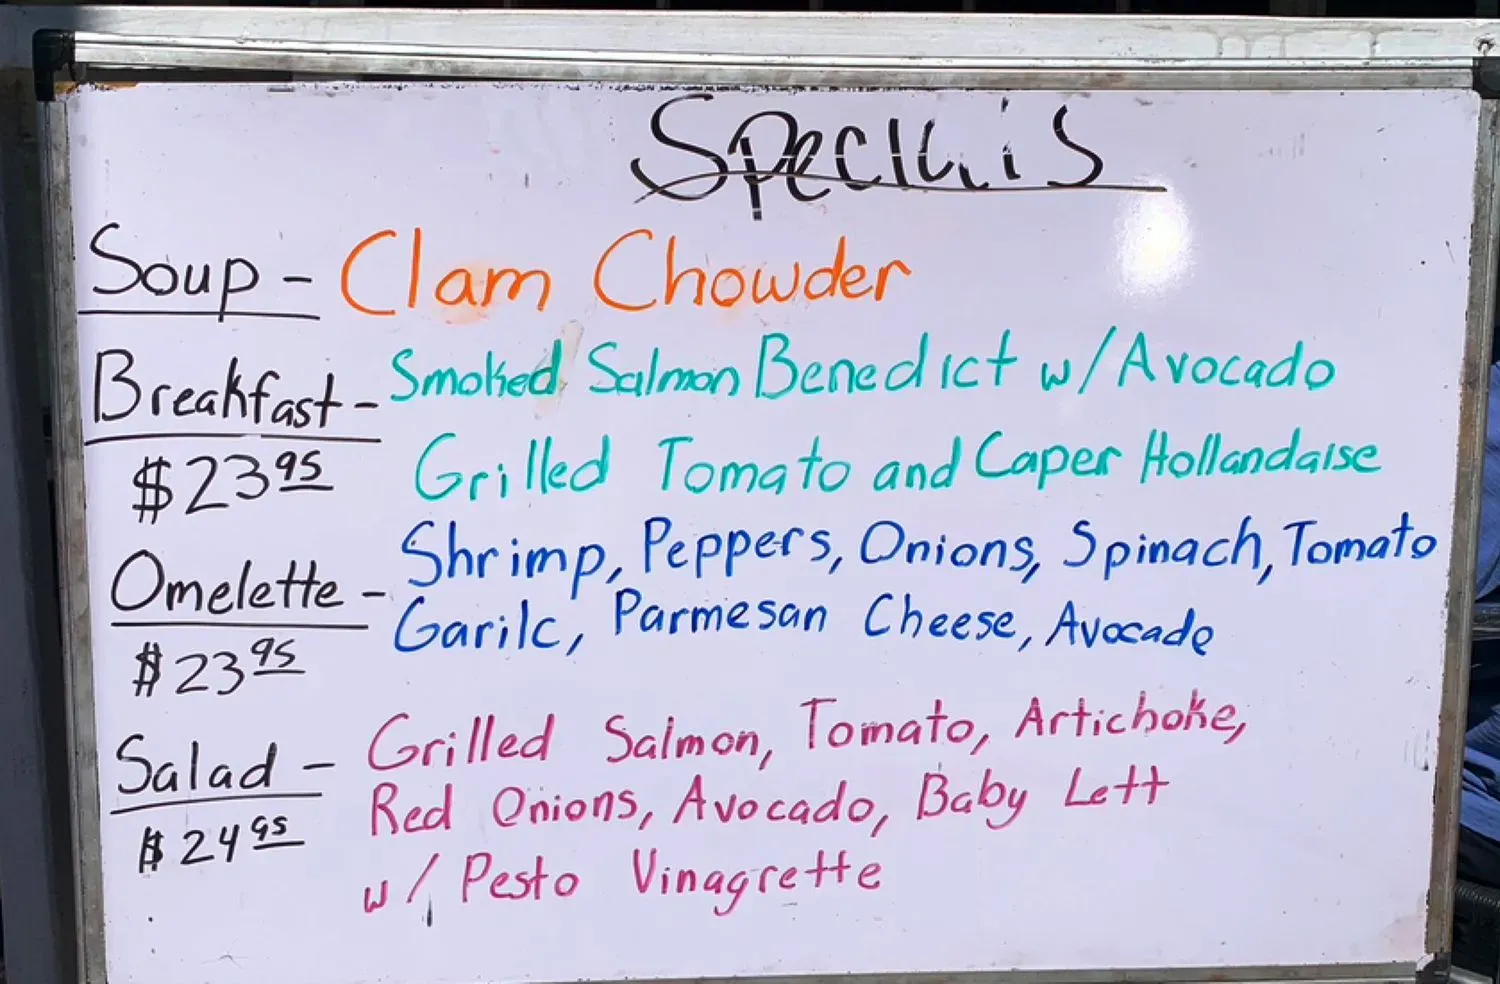 Specials
Soup - Clam Chowder
Breakfast - Smoked Salmon Benedict w/ Avocado
$23.95 Grilled Tomato and Caper Hollandaise
Omelette - Shrimp, Peppers, Onions, Spinach, Tomato
$23.95 Garilc, Parmesan Cheese, Avocado
Salad - Grilled Salmon, Tomato, Artichoke,
$24.95 Red Onions, Avocado, Baby Lett
w/ Pesto Vinagrette